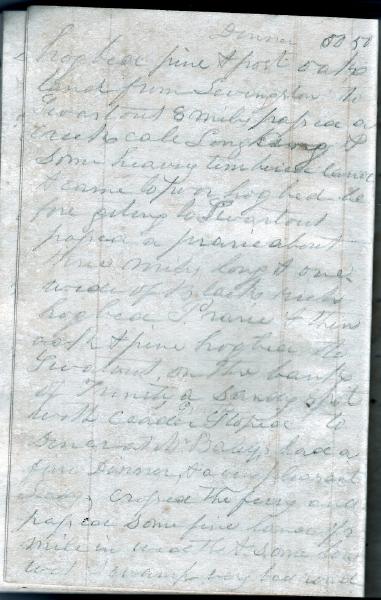 Dinner 50 50
hogbed pine & post oaks
land from Livingston to
Swartout 8 miles passed a
creek cald Long King &
some heavy timbered land
& came to poor hog bed be
fore giting to Swartout
passed a prarie about
three miles long & one
wide of Black rich
hogbed Prarie & then
oak & pine hogbed to
Swartout on the bank
of Trinity a Sandy spot
with Ceader Stoped to
Diner at Mr Balys had a
fine Dinner & a very pleasant
Lady, crossed the ferry and
passed some fine land
mile in width & some low
wet swamp very bad road